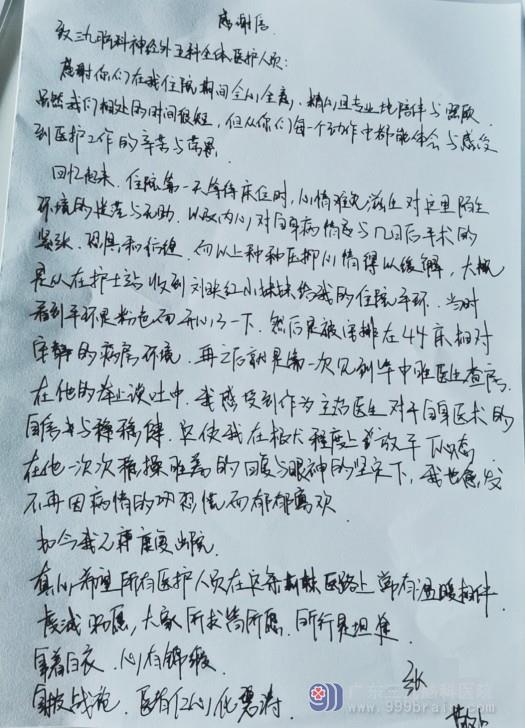 感谢信
致三九脑科神经外五科全体医护人员:
感谢你们在我住院期间全心全意、精心且专业地陪伴与照顾
虽然我们相处的时间很短,但从你们每一个动作中都能体会与感受
到医护工作的辛苦与
回忆起来,住院第一天等待床位时,心情难免滋生对这里陌生
环境的 与无助,以及内心对自身病情与几日后手术的
紧张、恐惧和 而以上种种压抑心情得以缓解,大概
是从在护士站收到刘映红小妹妹给我的住院手环,当时
看到手环是粉色而开心了一下,然后是被安排在44床相对
安静的病房环境,再之后就是第一次见到 医生查房,
在他的举止谈吐中,我感受到作为主治医生对于自身医术的
自信 与稳健,这使我在极大程度上 放平下心态
在他一次次 的回复与眼神的坚定下,我也愈发
不再因病情的 而郁郁寡欢
如今我已康复出院
真心希望所有医护人员在这条 医路上都有温暖相伴
虔诚祈愿,大家所求皆所愿,所行是坦途
穿着白衣,心有锦缎
身披战袍,医者仁心化
张
广东三九脑科医院
www.999brain.com